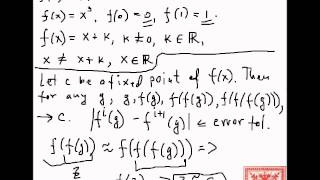 f(x) = x³, f(0) = 0, f(1) = 1.
f(x) = x + k, k ≠ 0, k ∈ ℝ,
x ≠ x + k, x ∈ ℝ
Let c be a fixed point of f(x). Then
for any g, g, f(g), f(f(g)), f(f(f(g)))
→ c. |fⁱ(g) − fⁱ⁺¹(g)| ≤ error tol.
f(f(g)) ≈ f(f(f(g))) ⇒
z